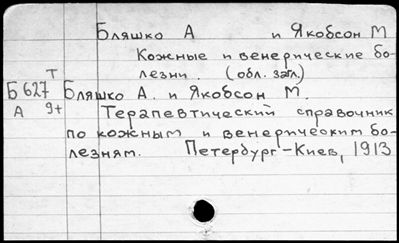 Бляшко А и Якобсон М
Кожные и венерические бо-
лезни. (обл. загл.)
Т
Б 627 Бляшко А. и Якобсон М.
А 9+ Терапевтический справочник
по кожным и венерическим бо-
лезням. Петербург-Киев, 1913